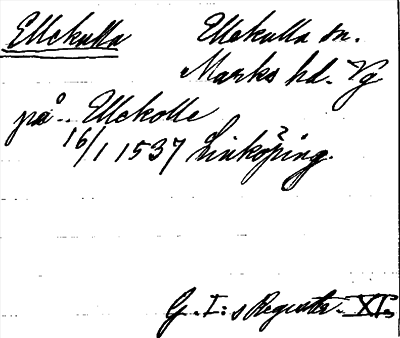 Ellekulla Ellekulla sn.
Marks hd. Vg
på .. Ellekolle
16/1 1537 Linköping.
G. I:s Registr. XI